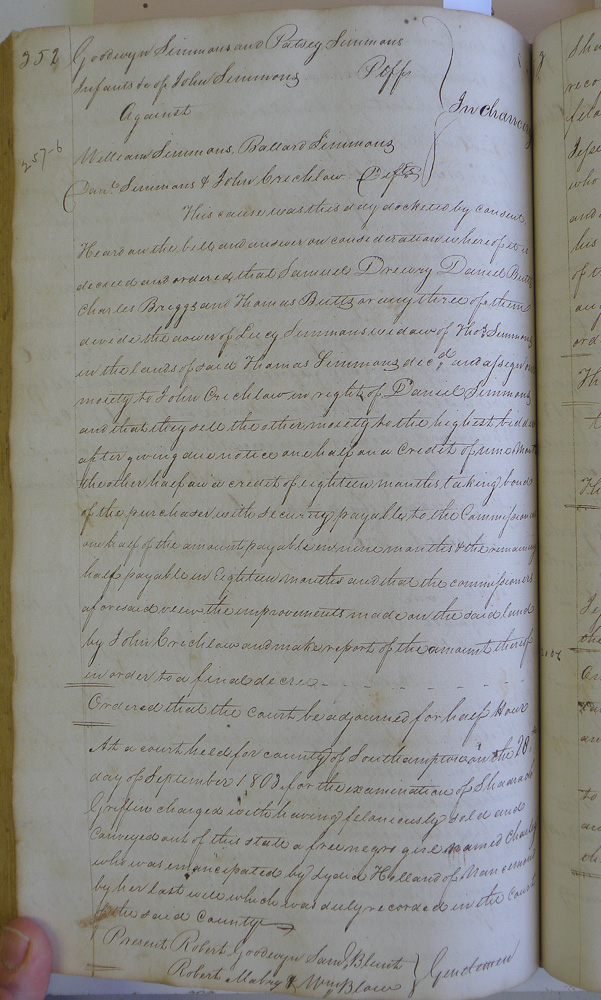 352 Goodwyn Simmons and Patsey Simmons
Infants &c of John Simmons Plffs
Against In chancery
257-6
William Simmons, Ballard Simmons
Danl. Simmons & John Crichlow Defts
This cause was this day docketed by consent
Heard on the bill and answer on consideration whereof it is
decreed and ordered that Samuel Drewry Daniel Butts
Charles Briggs and Thomas Butts or any three of them
divide the dower of Lucy Simmons widow of Thos. Simmons
in the lands of said Thomas Simmons decd. and assign one
moiety to John Crichlow in right of Daniel Simmons
and that they sell the other moiety to the highest bidder
after giving due notice one half on a Credit of nine Months
the other half on a credit of eighteen months taking bond
of the purchaser with security payable to the Commissioners
one half of the amount payable in nine months & the remaining
half payable in Eighteen months and that the commissioners
aforesaid view the improvements made on the said land
by John Crichlow and make report of the amount thereof
in order to a final decree
Ordered that the court be adjourned for half Hour
At a court held for county of Southampton on the 28th
day of September 1803 for the examination of Shadrach
Griffin charged with having feloniously sold and
Conveyed out of this state a free negro girl named Charlotte
who was emancipated by Lydia Holland of Nansemond
by her last will which was duly recorded in the Court
of the said County
Present Robert Goodwyn Saml. Blunt
Robert Mabry & Wm. Blow Gentlemen